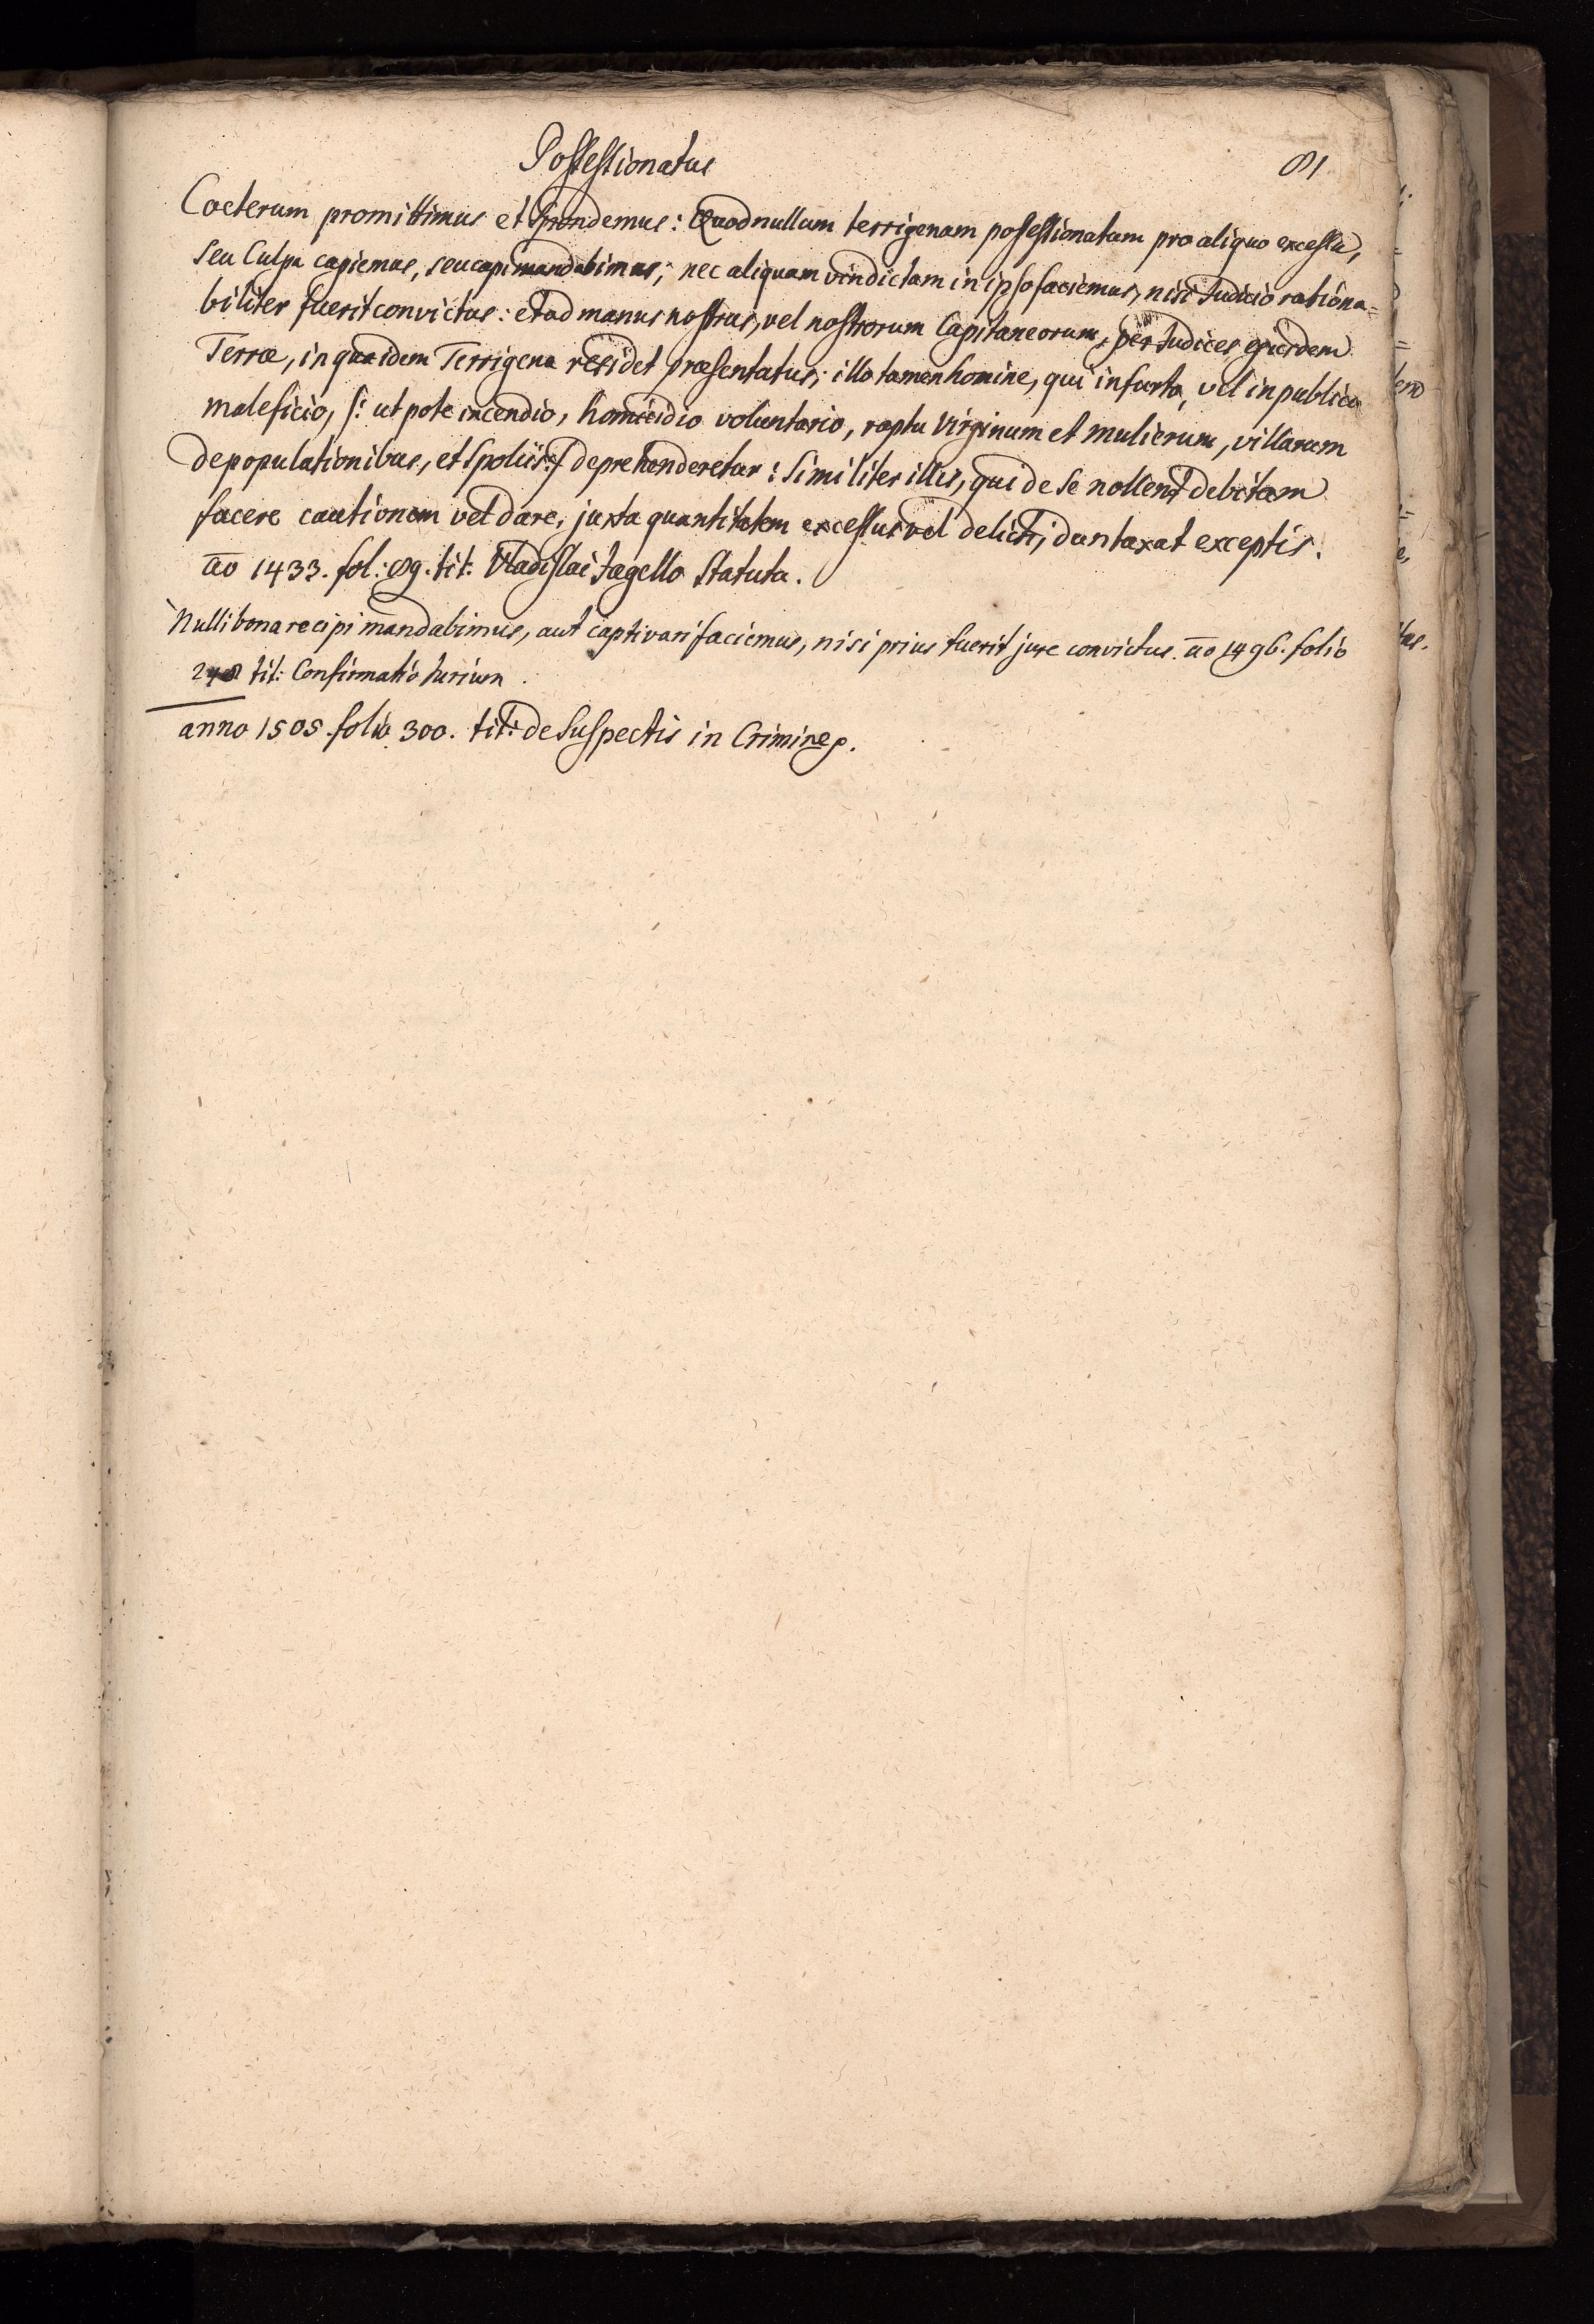 Possessionatus
81
Coeterum promittimus et Spondemus: Quod nullum terrigenam possessionatum pro aliquo excessu,
seu Culpa capiemus, seu capi mandabimus; nec aliquam vindictam in ipso faciemus, nisi Judicio rationa=
biliter fuerit convictus: et ad manus nostras, vel nostrorum Capitaneorum, per Judices ejusdem
Terræ, in qua idem Terrigena residet præsentatus; illo tamen homine, qui in furto, vel in publico
maleficio, /: ut pote incendio, homicidio voluntario, raptu Virginum et mulierum, villarum
depopulationibus, et Spoliis :/ deprehenderetur: Similiter illis, qui de se nollent debitam
facere cautionem vel dare, juxta quantitatem excessus vel delicti, duntaxat exceptis.
āo 1433. fol: 89. tit: Vladislai Jagello Statuta.
Nulli bona recipi mandabimus, aut captivari faciemus, nisi prius fuerit jure convictus. āo 1496. folio
tit: Confirmatio Jurium.
anno 1505. folio 300. tit: de Suspectis in Crimine.